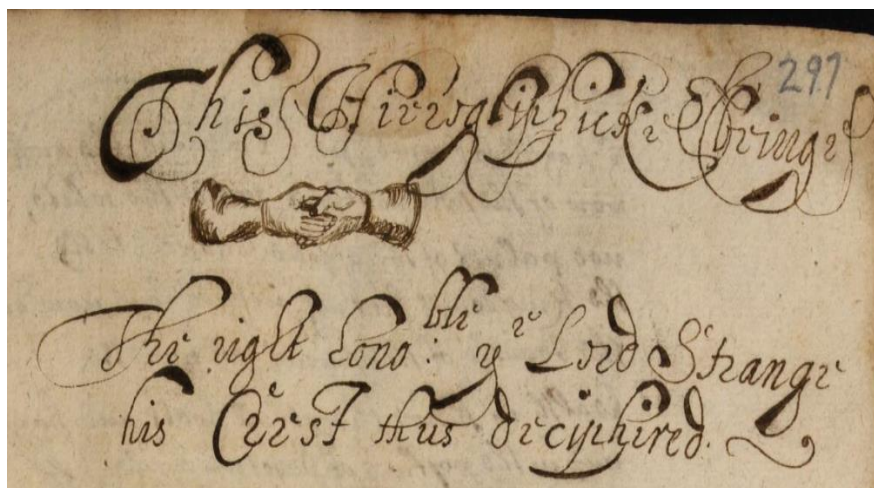 297
This Hierogliphicke Bringes
The right hono:ble ye Lord Strange
his Crest thus deciphired.